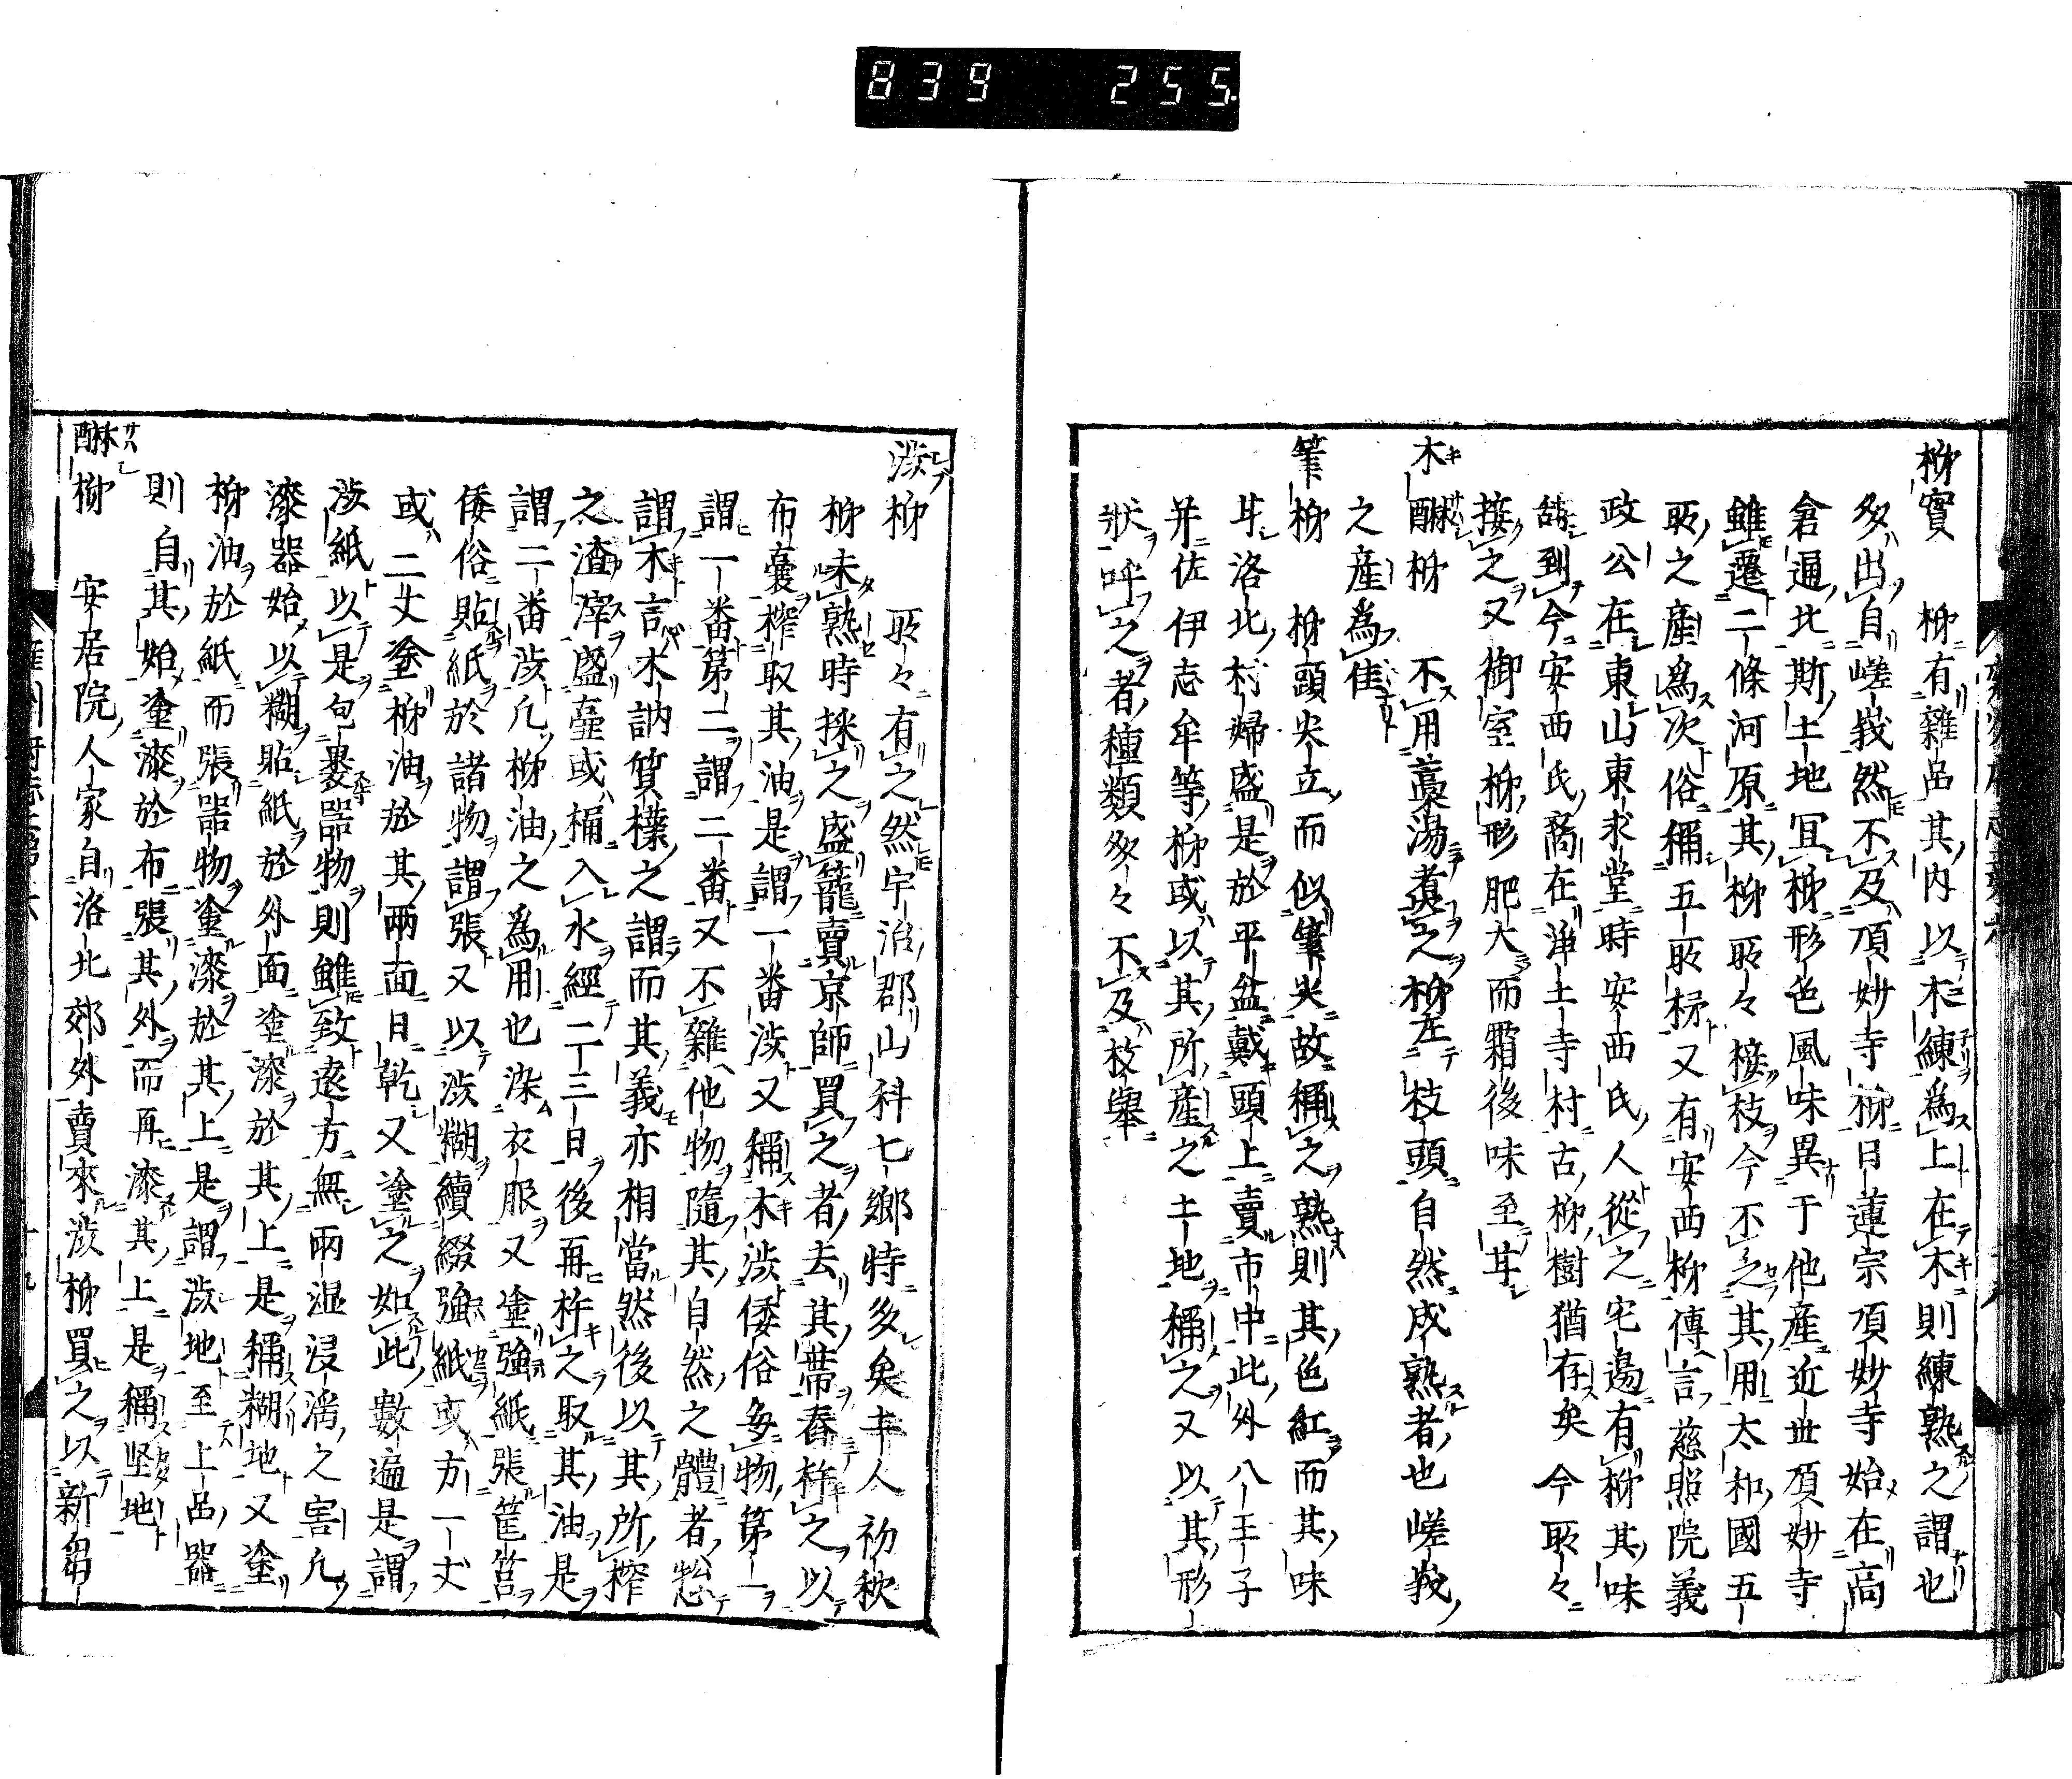 839 255
柹實 柹有雜品其内以木練爲上在木則練熟之謂也
多出自嵯峩然不及頂妙寺柹日蓮宗頂妙寺始在高
倉通北斯土地冝柹形色風味異于他産近世頂妙寺
雖遷二條河原其柹所々接枝今不乏其用太和國五
所之産爲次俗稱五所柹又有安西柹傳言慈照院義
政公在東山東求堂時安西氏人從之宅邊有柹其味
到今安西氏裔在淨土寺村古柹樹猶存矣今所々
接之又御室柹形肥大而霜後味至耳
木醂柹 不用藁湯煮之柹在枝頭自然成熟者也嵯峩
之産爲佳
筆柹 柹頭尖立而似筆尖故稱之熟則其色紅而其味
耳洛北村婦盛是於平盆戴頭上賣市中此外八王子
并佐伊志牟等柹或以其所産之土地稱之又以其形
狀呼之者種類多々不及枚舉
澁柹 所々有之然宇治郡山科七鄉特多矣土人初秋
柹未熟時採之盛籠賣京師買之者去其蔕舂杵之以
布囊搾取其油是謂一番澁又稱木澁倭俗每物第一
謂一番第二謂二番又不雜他物隨其自然之體者惣
謂木言木訥質樸之謂而其義亦相當然後以其所搾
之渣滓盛壷或桶入水經二三日後再杵之取其油是
謂二番澁凡柹油之爲用也染衣服又塗強紙張筐筥
倭俗貼紙於諸物謂張又以澁糊續綴強紙或方一丈
或二丈塗柹油於其兩面日乾又塗之如此數遍是謂
澁紙以是包裹器物則雖致遠方無雨濕浸濡之害凡
漆器始以糊貼紙於外面塗漆於其上是稱糊地又塗
柹油於紙而張器物塗漆於其上是謂澁地至上品器
則自其始塗漆於布張其外而再漆其上是稱堅地
醂柹 安居院人家自洛北郊外賣來澁柹買之以新芻